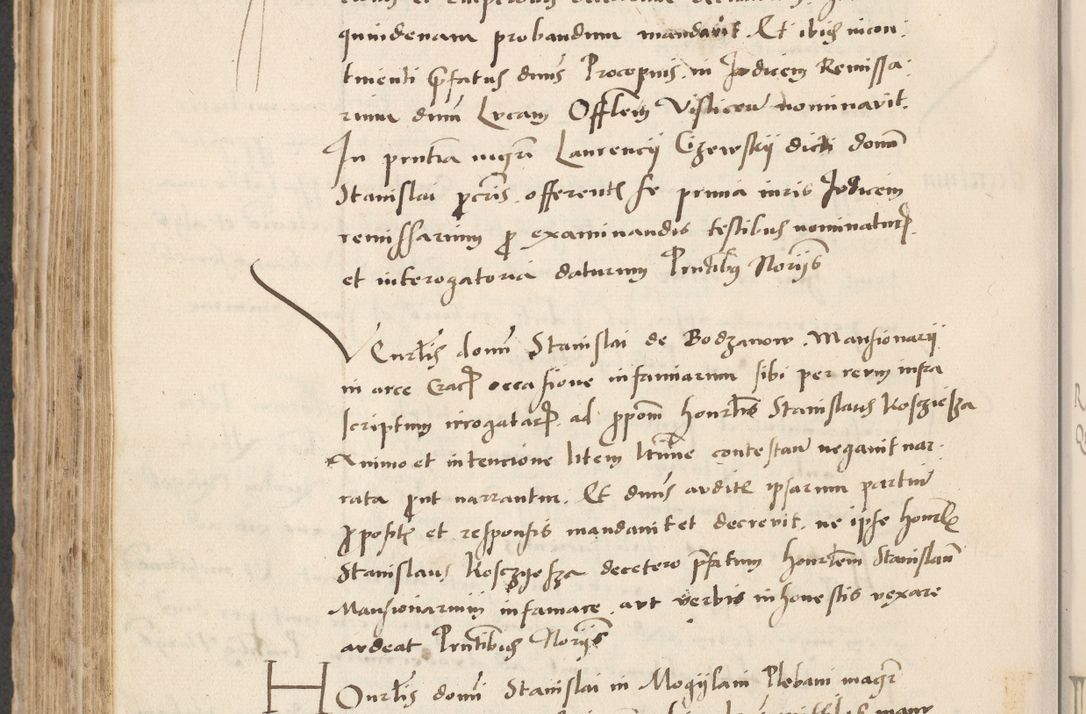 quindenam probandum mandavit. Et ibid incon
tinenti p̄fatus dnūs Procopius in Judicem Remissa
rium dnūm Lucam Offlem Visliceń nominavit.
In pn̄tia mgr̄i Laurencij Gizewskij dicti domī
Stanislai pc̄ris. offerentē se prima iuris Judicem
remissarium p̱ examinandis testibus nominaturꝝ
et interogatoria daturum Pn̄tibus Norijs
Vener̄lis domī Stanislai de Bodzanow Mansionarij
in arce Crac̄ occasione infamiarum sibi per reum infra
scriptum irrogatarꝝ. ad p̱pom̄ honr̄lis Stanislaus Koscziesza
Animo et intencione litem ltīme contestan̄ negavit nar
rata put narrantur. Et dnūs auditē ipsarum partiū
p̱positē et responsis mandavit et decrevit. ne ipse honr̄lē
Stanislaus Kosczyesza decetero p̄fatum honr̄lem Stanislaū
Mansionarium infamare aut verbis inhonestis vexare
audeat Pn̄tibus Norijs
Honr̄lis domī Stanislai in Mogylani Plebani magr̄